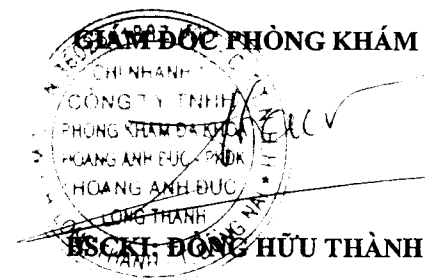 GIÁM ĐỐC PHÒNG KHÁM
CHI NHÁNH
CÔNG TY TNHH
PHÒNG KHÁM ĐA KHOA
HOÀNG ANH ĐỨC - PKĐK
HOÀNG ANH ĐỨC
LONG THÀNH
BSCKI: ĐỒNG HỮU THÀNH